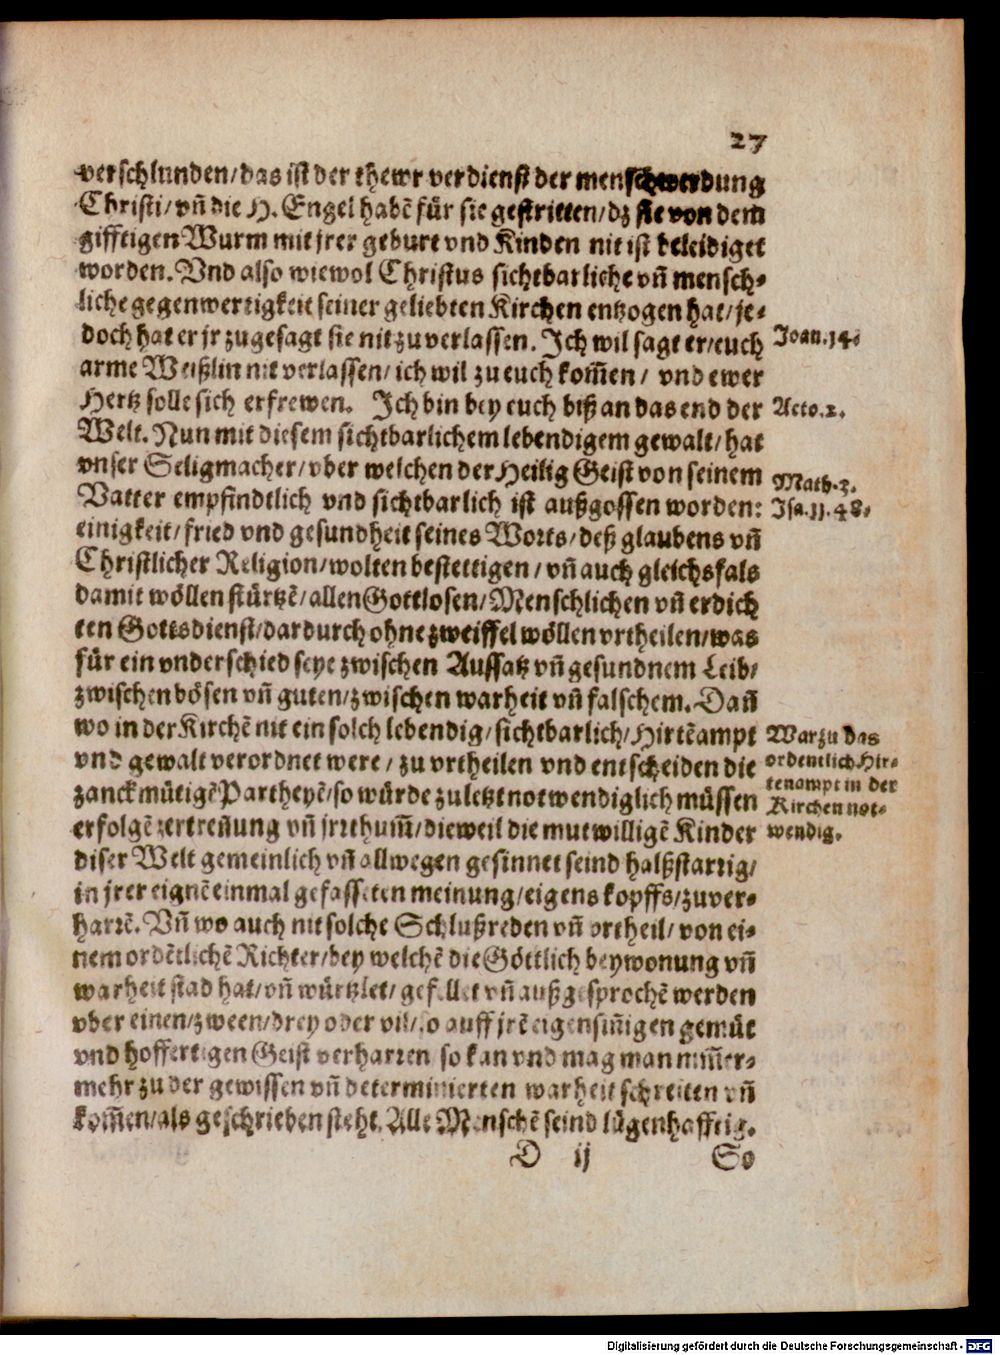 27
verschlunden/das ist der thewr verdienst der menschwerdung
Christi/vñ die H. Engel habẽ für sie gestritten/dz sie von dem
gifftigen Wurm mit jrer geburt vnd Kinden nit ist beleidiget
worden. Vnd also wiewol Christus sichtbarliche vñ mensch-
liche gegenwertigkeit seiner geliebten Kirchen entzogen hat/je-
doch hat er jr zugesagt sie nit zu verlassen. Ich wil sagt er/euch
Joan. 14.
arme Weißlin nit verlassen/ich wil zu euch kom̃en/ vnd ewer
Hertz solle sich erfrewen. Ich bin bey euch biß an das end der
Acto. 2.
Welt. Nun mit diesem sichtbarlichem lebendigem gewalt/hat
vnser Seligmacher/vber welchen der Heilig Geist von seinem
Math. 3.
Vatter empfindtlich vnd sichtbarlich ist außgossen worden:
Isa. 11. 48.
einigkeit/fried vnd gesundheit seines Worts/deß glaubens vñ
Christlicher Religion/wolten bestettigen/vñ auch gleichsfals
damit wöllen stürtzẽ/allen Gottlosen/Menschlichen vñ erdich
ten Gottsdienst/dardurch ohne zweiffel wöllen vrtheilen/was
für ein vnderschied seye zwischen Aussatz vñ gesundnem Leib/
zwischen bösen vñ guten/zwischen warheit vñ falschem. Dañ
wo in der Kirchẽ nit ein solch lebendig/sichtbarlich/Hirtẽampt
Warzu das
vnd gewalt verordnet were/zu vrtheilen vnd entscheiden die
ordentlich Hir-
tenampt in der
zanckmütigẽ Partheyẽ/so würde zuletzt notwendiglich müssen
Kirchen not-
erfolgẽ zertreñung vñ jrrthum̃/dieweil die mutwilligẽ Kinder
wendig.
diser Welt gemeinlich vñ allwegen gesinnet seind halßstarrig/
in jrer eignẽ einmal gefasseten meinung/eigens kopffs/zuver-
harrẽ. Vñ wo auch nit solche Schlußreden vñ vrtheil/von ei-
nem ordẽtlichẽ Richter/bey welchẽ die Göttlich beywonung vñ
warheit stad hat/vñ würtzlet/gefellet vñ außgesprochẽ werden
vber einen/zween/drey oder vil/so auff jrẽ eigensiñigen gemüt
vnd hoffertigen Geist verharren so kan vnd mag man nim̃er-
mehr zu der gewissen vñ determinierten warheit schreiten vñ
kom̃en/als geschrieben steht. Alle Menschẽ seind lügenhafftig.
D ij So
Digitalisierung gefördert durch die Deutsche Forschungsgemeinschaft - DFG